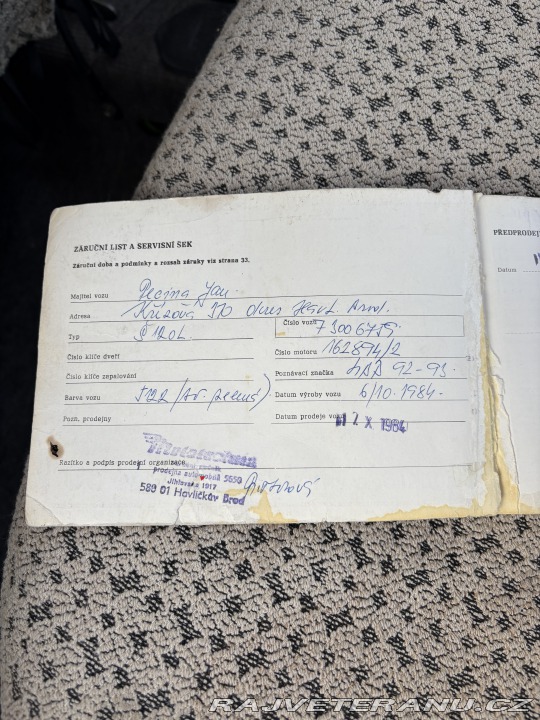 ZÁRUČNÍ LIST A SERVISNÍ ŠEK
Záruční doba a podmínky a rozsah záruky viz strana 33.
Majitel vozu Pecina Jan
Adresa okres Havl. Brod.
Typ Š 120L
Číslo vozu
Číslo klíče dveří
Číslo motoru 162894/2
Číslo klíče zapalování
Poznávací značka 92-93
Barva vozu
Datum výroby vozu 6/10.1984
Pozn. prodejny
Datum prodeje vozu 17. X 1984
Razítko a podpis prodejní organizace
Mototechna
prodejna automobilů 5650
Jihlavská 1917
580 01 Havlíčkův Brod
PŘEDPRODEJ
Datum
RAJVETERANU.CZ